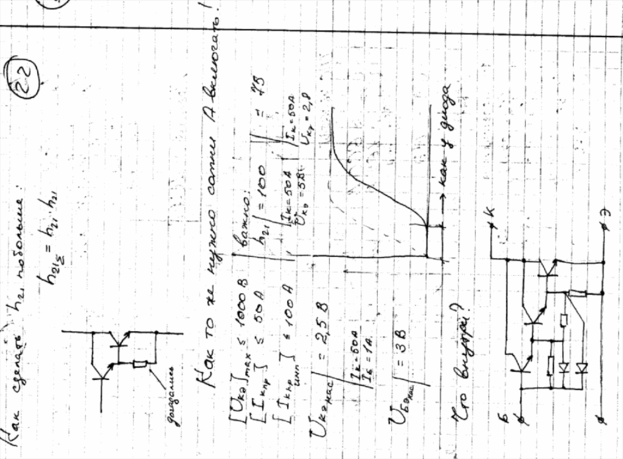 22
Как сделать h₂₁ побольше:
h₂₁Σ = h₂₁ · h₂₁
догадались
Как то же нужно сотни А включать!
[Uкэ]max ≤ 1000 В
[Iк пр] ≤ 50 А
[Iк пр имп] ≤ 100 А
важно:
h₂₁ | = 100 | = 75
Iк=50А Uкэ=5В
Iк=50А Uкэ=2,8
Uкэ нас | = 2,5 В
Iк=50А
Iб=1А
Uбэ нас | = 3 В
→ как у диода
Что внутри?
Б
К
Э